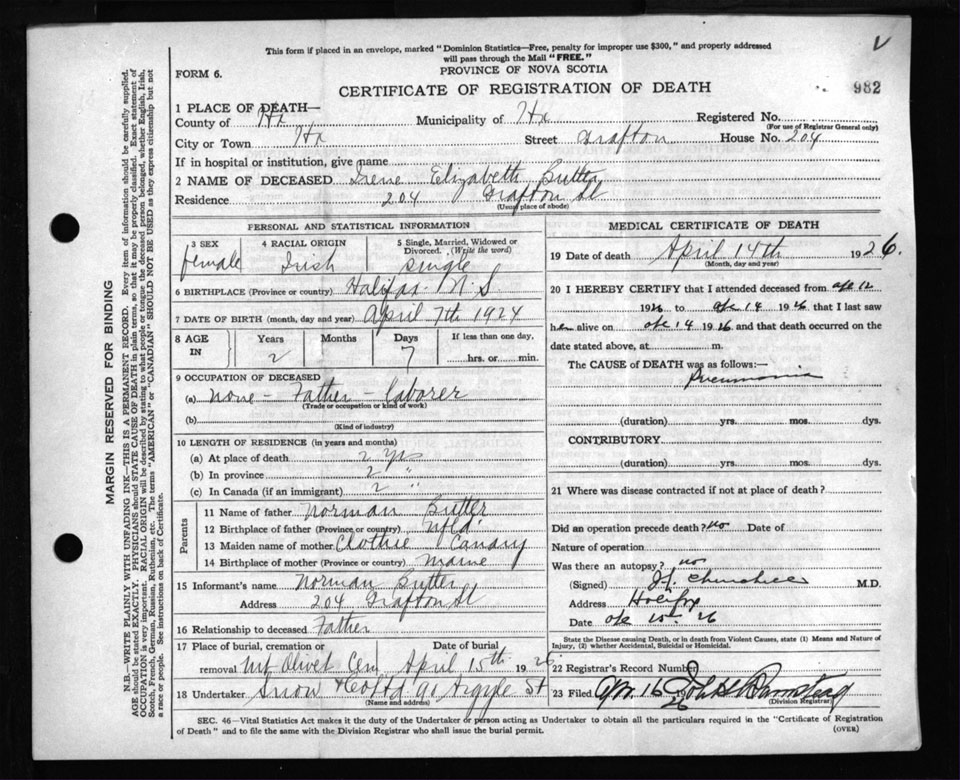 This form if placed in an envelope, marked "Dominion Statistics—Free, penalty for improper use $300," and properly addressed
will pass through the Mail "FREE."
FORM 6.
PROVINCE OF NOVA SCOTIA
CERTIFICATE OF REGISTRATION OF DEATH
982
1 PLACE OF DEATH—
County of Hx Municipality of Hx Registered No.
(For use of Registrar General only)
City or Town Hx Street Grafton House No. 204
If in hospital or institution, give name
2 NAME OF DECEASED Irene Elizabeth Butter
Residence 204 Grafton St
(Usual place of abode)
PERSONAL AND STATISTICAL INFORMATION
3 SEX 4 RACIAL ORIGIN 5 Single, Married, Widowed or
Divorced. (Write the word)
female Irish single
6 BIRTHPLACE (Province or country) Halifax N.S.
7 DATE OF BIRTH (month, day and year) April 7th 1924
8 AGE IN Years Months Days If less than one day,
2 7 hrs. or min.
9 OCCUPATION OF DECEASED
(a) None - Father - laborer
(Trade or occupation or kind of work)
(b)
(Kind of industry)
10 LENGTH OF RESIDENCE (in years and months)
(a) At place of death 2 yrs
(b) In province 2 "
(c) In Canada (if an immigrant) 2 "
Parents
11 Name of father Norman Butter
12 Birthplace of father (Province or country) Nfld.
13 Maiden name of mother Clothie Canary
14 Birthplace of mother (Province or country) Maine
15 Informant's name Norman Butter
Address 204 Grafton St
16 Relationship to deceased Father
17 Place of burial, cremation or Date of burial
removal Mt Olivet Cem April 15th 1926
18 Undertaker Snow & Co Ltd 90 Argyle St
(Name and address)
MEDICAL CERTIFICATE OF DEATH
19 Date of death April 14th 1926.
(Month, day and year)
20 I HEREBY CERTIFY that I attended deceased from Apl 12
1926 to Apl 14 1926 that I last saw
her alive on Apl 14 1926 and that death occurred on the
date stated above, at m.
The CAUSE OF DEATH was as follows:
Pneumonia
(duration) yrs. mos. dys.
CONTRIBUTORY
(duration) yrs. mos. dys.
21 Where was disease contracted if not at place of death?
Did an operation precede death? no Date of
Nature of operation
Was there an autopsy? no
(Signed) Churchill M.D.
Address Halifax
Date Apl 15 26
State the Disease causing Death, or in death from Violent Causes, state (1) Means and Nature of
Injury, (2) whether Accidental, Suicidal or Homicidal.
22 Registrar's Record Number
23 Filed 16 1926
(Division Registrar)
SEC. 46—Vital Statistics Act makes it the duty of the Undertaker or person acting as Undertaker to obtain all the particulars required in the "Certificate of Registration
of Death" and to file the same with the Division Registrar who shall issue the burial permit.
(OVER)
MARGIN RESERVED FOR BINDING
N.B.—WRITE PLAINLY WITH UNFADING INK—THIS IS A PERMANENT RECORD. Every item of information should be carefully supplied.
AGE should be stated EXACTLY. PHYSICIANS should STATE CAUSE OF DEATH in plain terms, so that it may be properly classified. Exact statement of
OCCUPATION is very important. RACIAL ORIGIN will be described by stating to what people or tongue the deceased person belonged, whether English, Irish,
Scotch, French, German, Russian, Ruthenian, etc. The terms "AMERICAN" or "CANADIAN" SHOULD NOT BE USED as they express citizenship but not
a race or people. See instructions on back of Certificate.